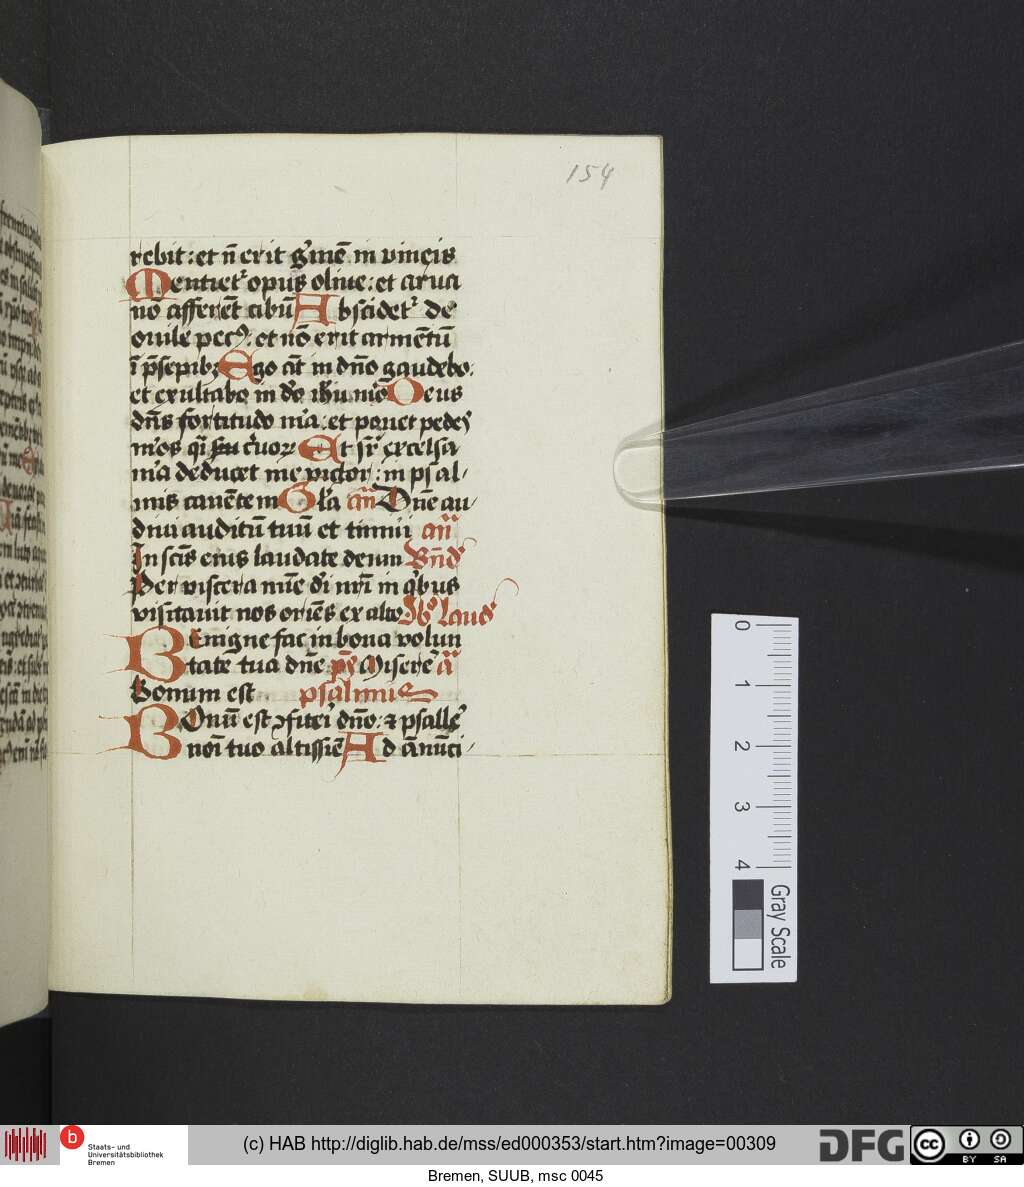 154
rebit : et n̄ erit g̾mē in vineis
Mentiet᷑ opus oliue : et arua
nō afferēt cibū Abscidet᷑ de
ouile pec⁹ : et nō erit armētū
ī p̄sepibꝫ Ego āt in dn̄o gaudebo :
et exultabo in dō ihu mō Deus
dn̄s fortitudo m̄a : et ponet pedes
mōs q̄i c̾uoꝝ Et sr̄ excelsa
m̄a deducet me victor : in psal-
mis canētem Gl̄a an̄ Dn̄e au-
diui auditū tuū et timui an̄
In scīs eius laudate deum Bn̄d̄
Per viscera mīe d̄i nr̄i in q̾bus
visitauit nos oriēs ex alto Laud̄
Benigne fac in bona volun
tatē tua dn̄e p̄s Miserē a̅
Bonum est psalmus
Bonū est ꝯfitei dn̄o : ⁊ psallē
noī tuo altissīe Ad ānūci-
0
1
2
3
4
Gray Scale
b
Staats- und
Universitätsbibliothek
Bremen
(c) HAB http://diglib.hab.de/mss/ed000353/start.htm?image=00309
DFG
cc
BY SA
Bremen, SUUB, msc 0045